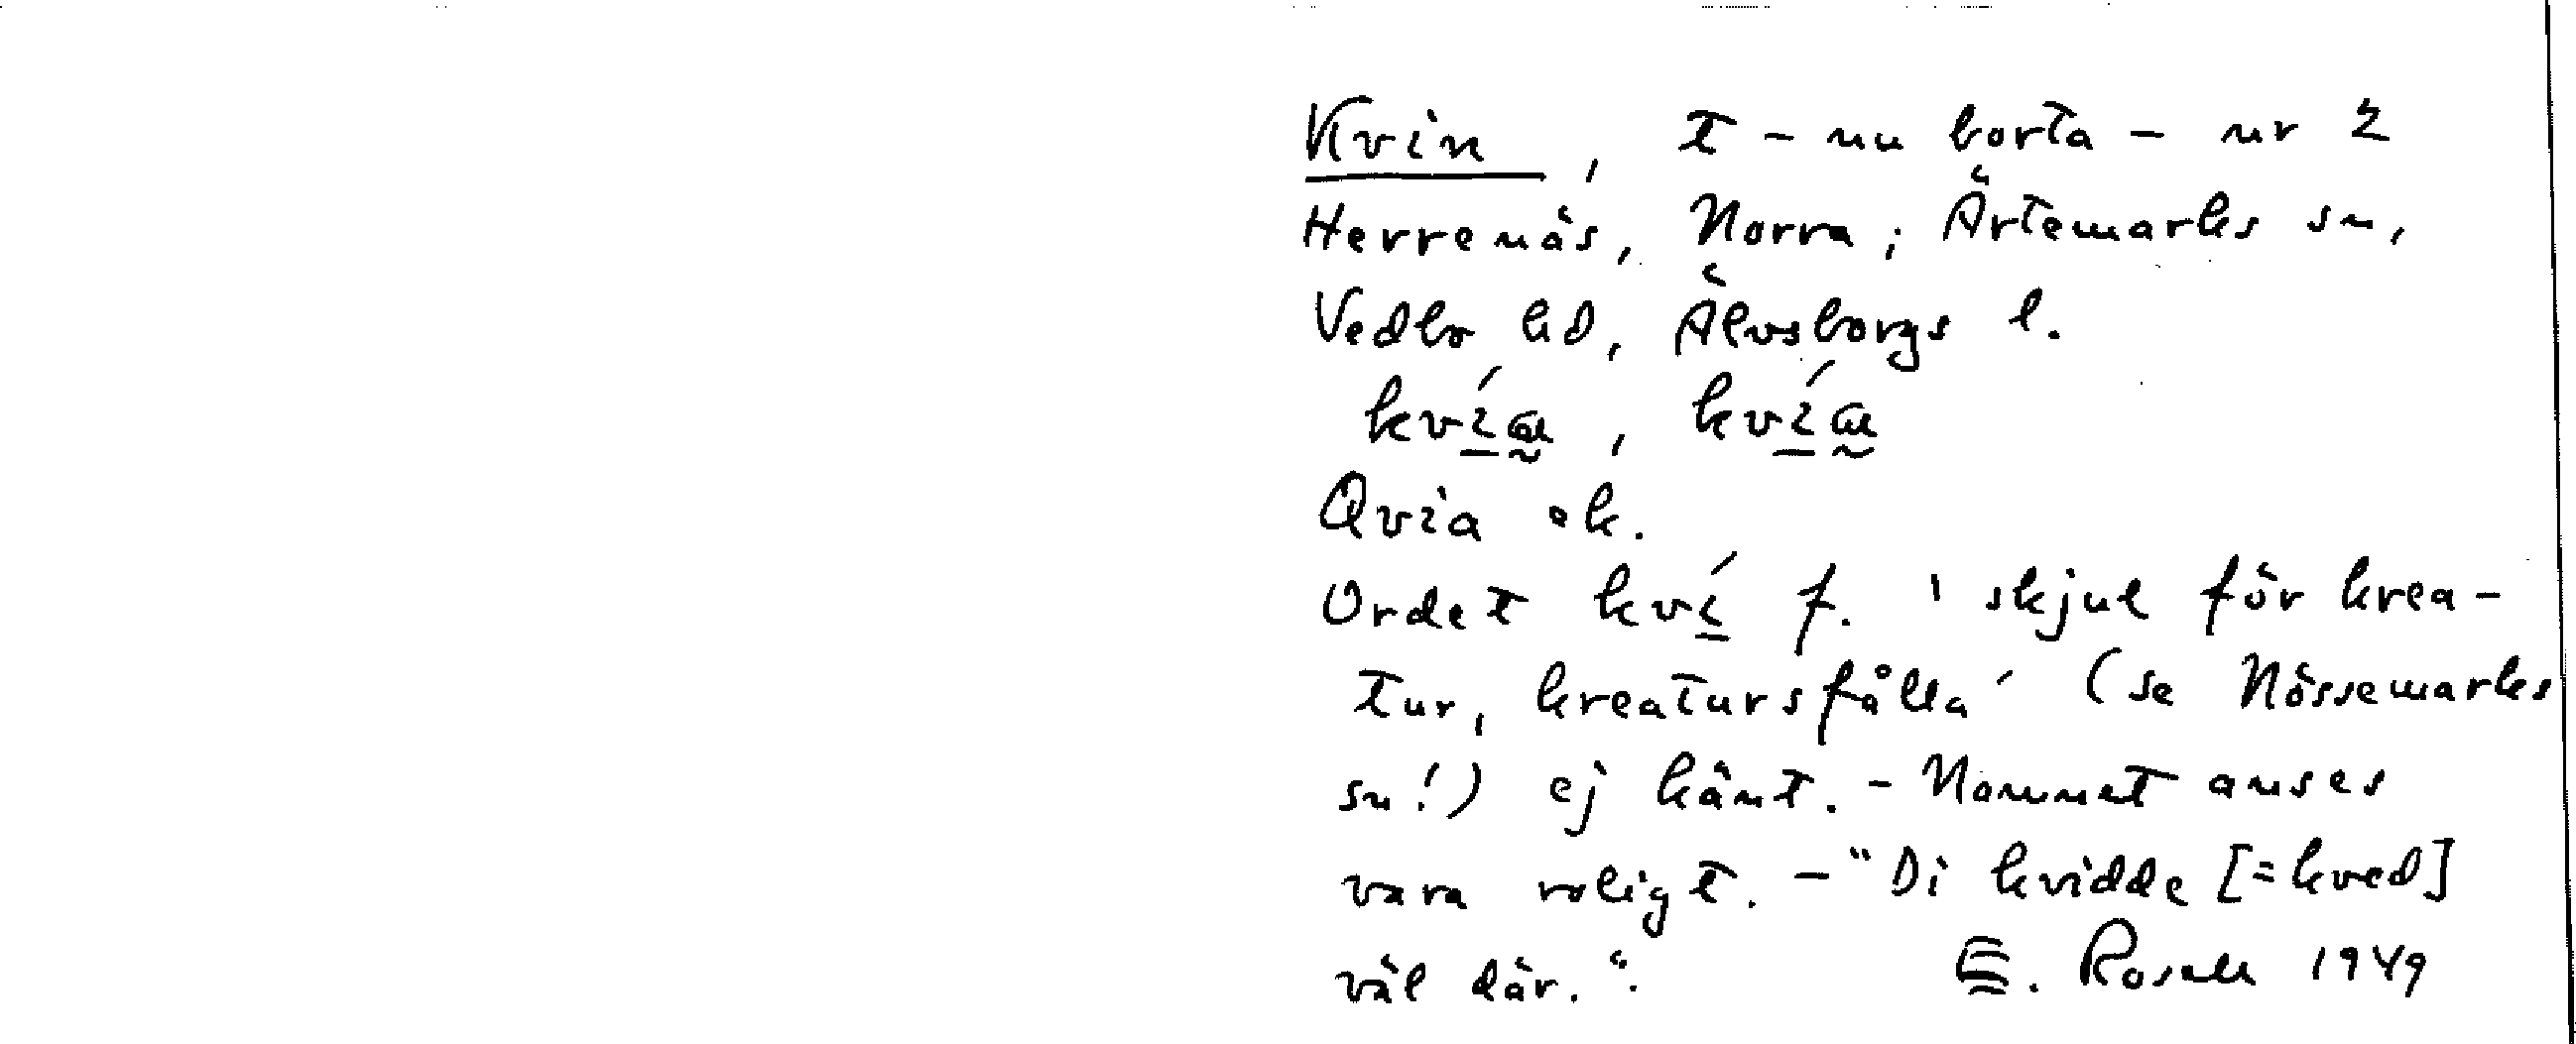 Kvin, t - nu borta - nr 2
Herrenäs, Norra; Ärtemarks sn,
Vedbo hd, Älvsborgs l.
kví̱a̰, kví̱a̰
Qvia ek.
Ordet kví̱ f. 'skjul för krea-
tur, kreatursfålla' (se Nössemarks
sn!) ej känt. - Namnet anses
vara roligt. - "Di kvidde [=kved]
väl där.".
E. Rosell 1949